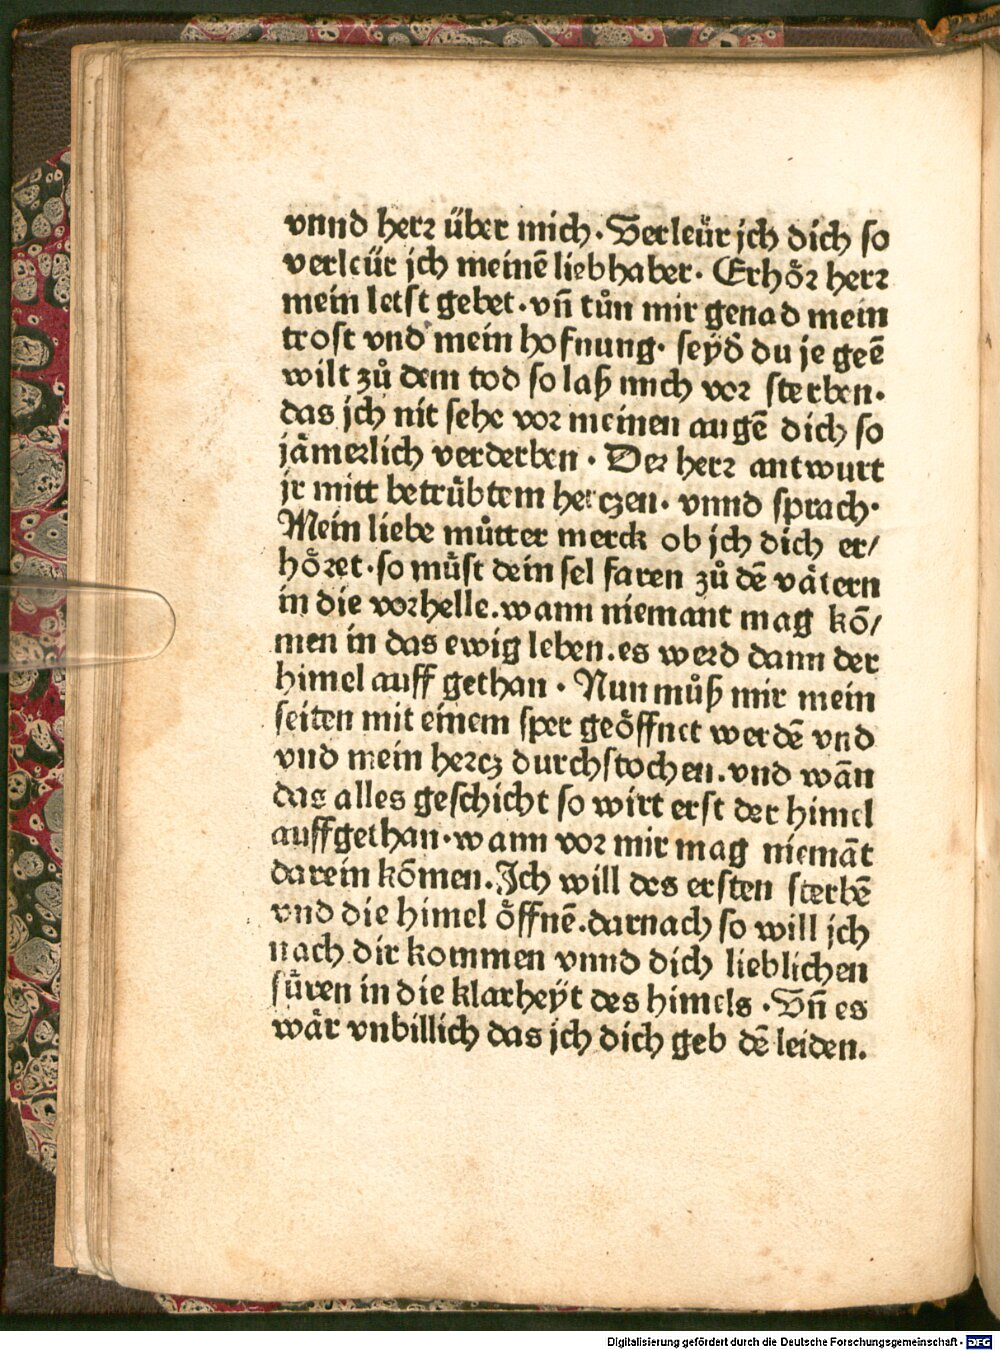 vnnd herꝛ über mich. Verleür jch dich so
verleür jch meinē liebhaber. Erhöꝛ herꝛ
mein letst gebet. vñ tůn mir genad mein
trost vnd mein hofnung. seÿd du je geē
wilt zů dem tod so laß mich voꝛ sterben.
das jch nit sehe voꝛ meinen augē dich so
jämerlich verderben. Der herꝛ antwurt
jr mitt betrübtem hertzen. vnnd sprach.
Mein liebe můtter merck ob jch dich er/
höꝛet. so můst dein sel faren zů dē vätern
in die voꝛhelle. wann niemant mag kō/
men in das ewig leben. es werd dann der
himel auff gethan. Nun můß mir mein
seiten mit einem sper geöffnet werdē vnd
vnd mein hertz durchstochen. vnd wān
das alles geschicht so wirt erst der himel
auffgethan. wann voꝛ mir mag niemāt
darein kōmen. Ich will des ersten sterbē
vnd die himel öffnē. darnach so will jch
nach dir kommen vnnd dich lieblichen
füren in die klarheÿt des himels. Vñ es
wär vnbillich das jch dich geb dē leiden.
Digitalisierung gefördert durch die Deutsche Forschungsgemeinschaft - DFG